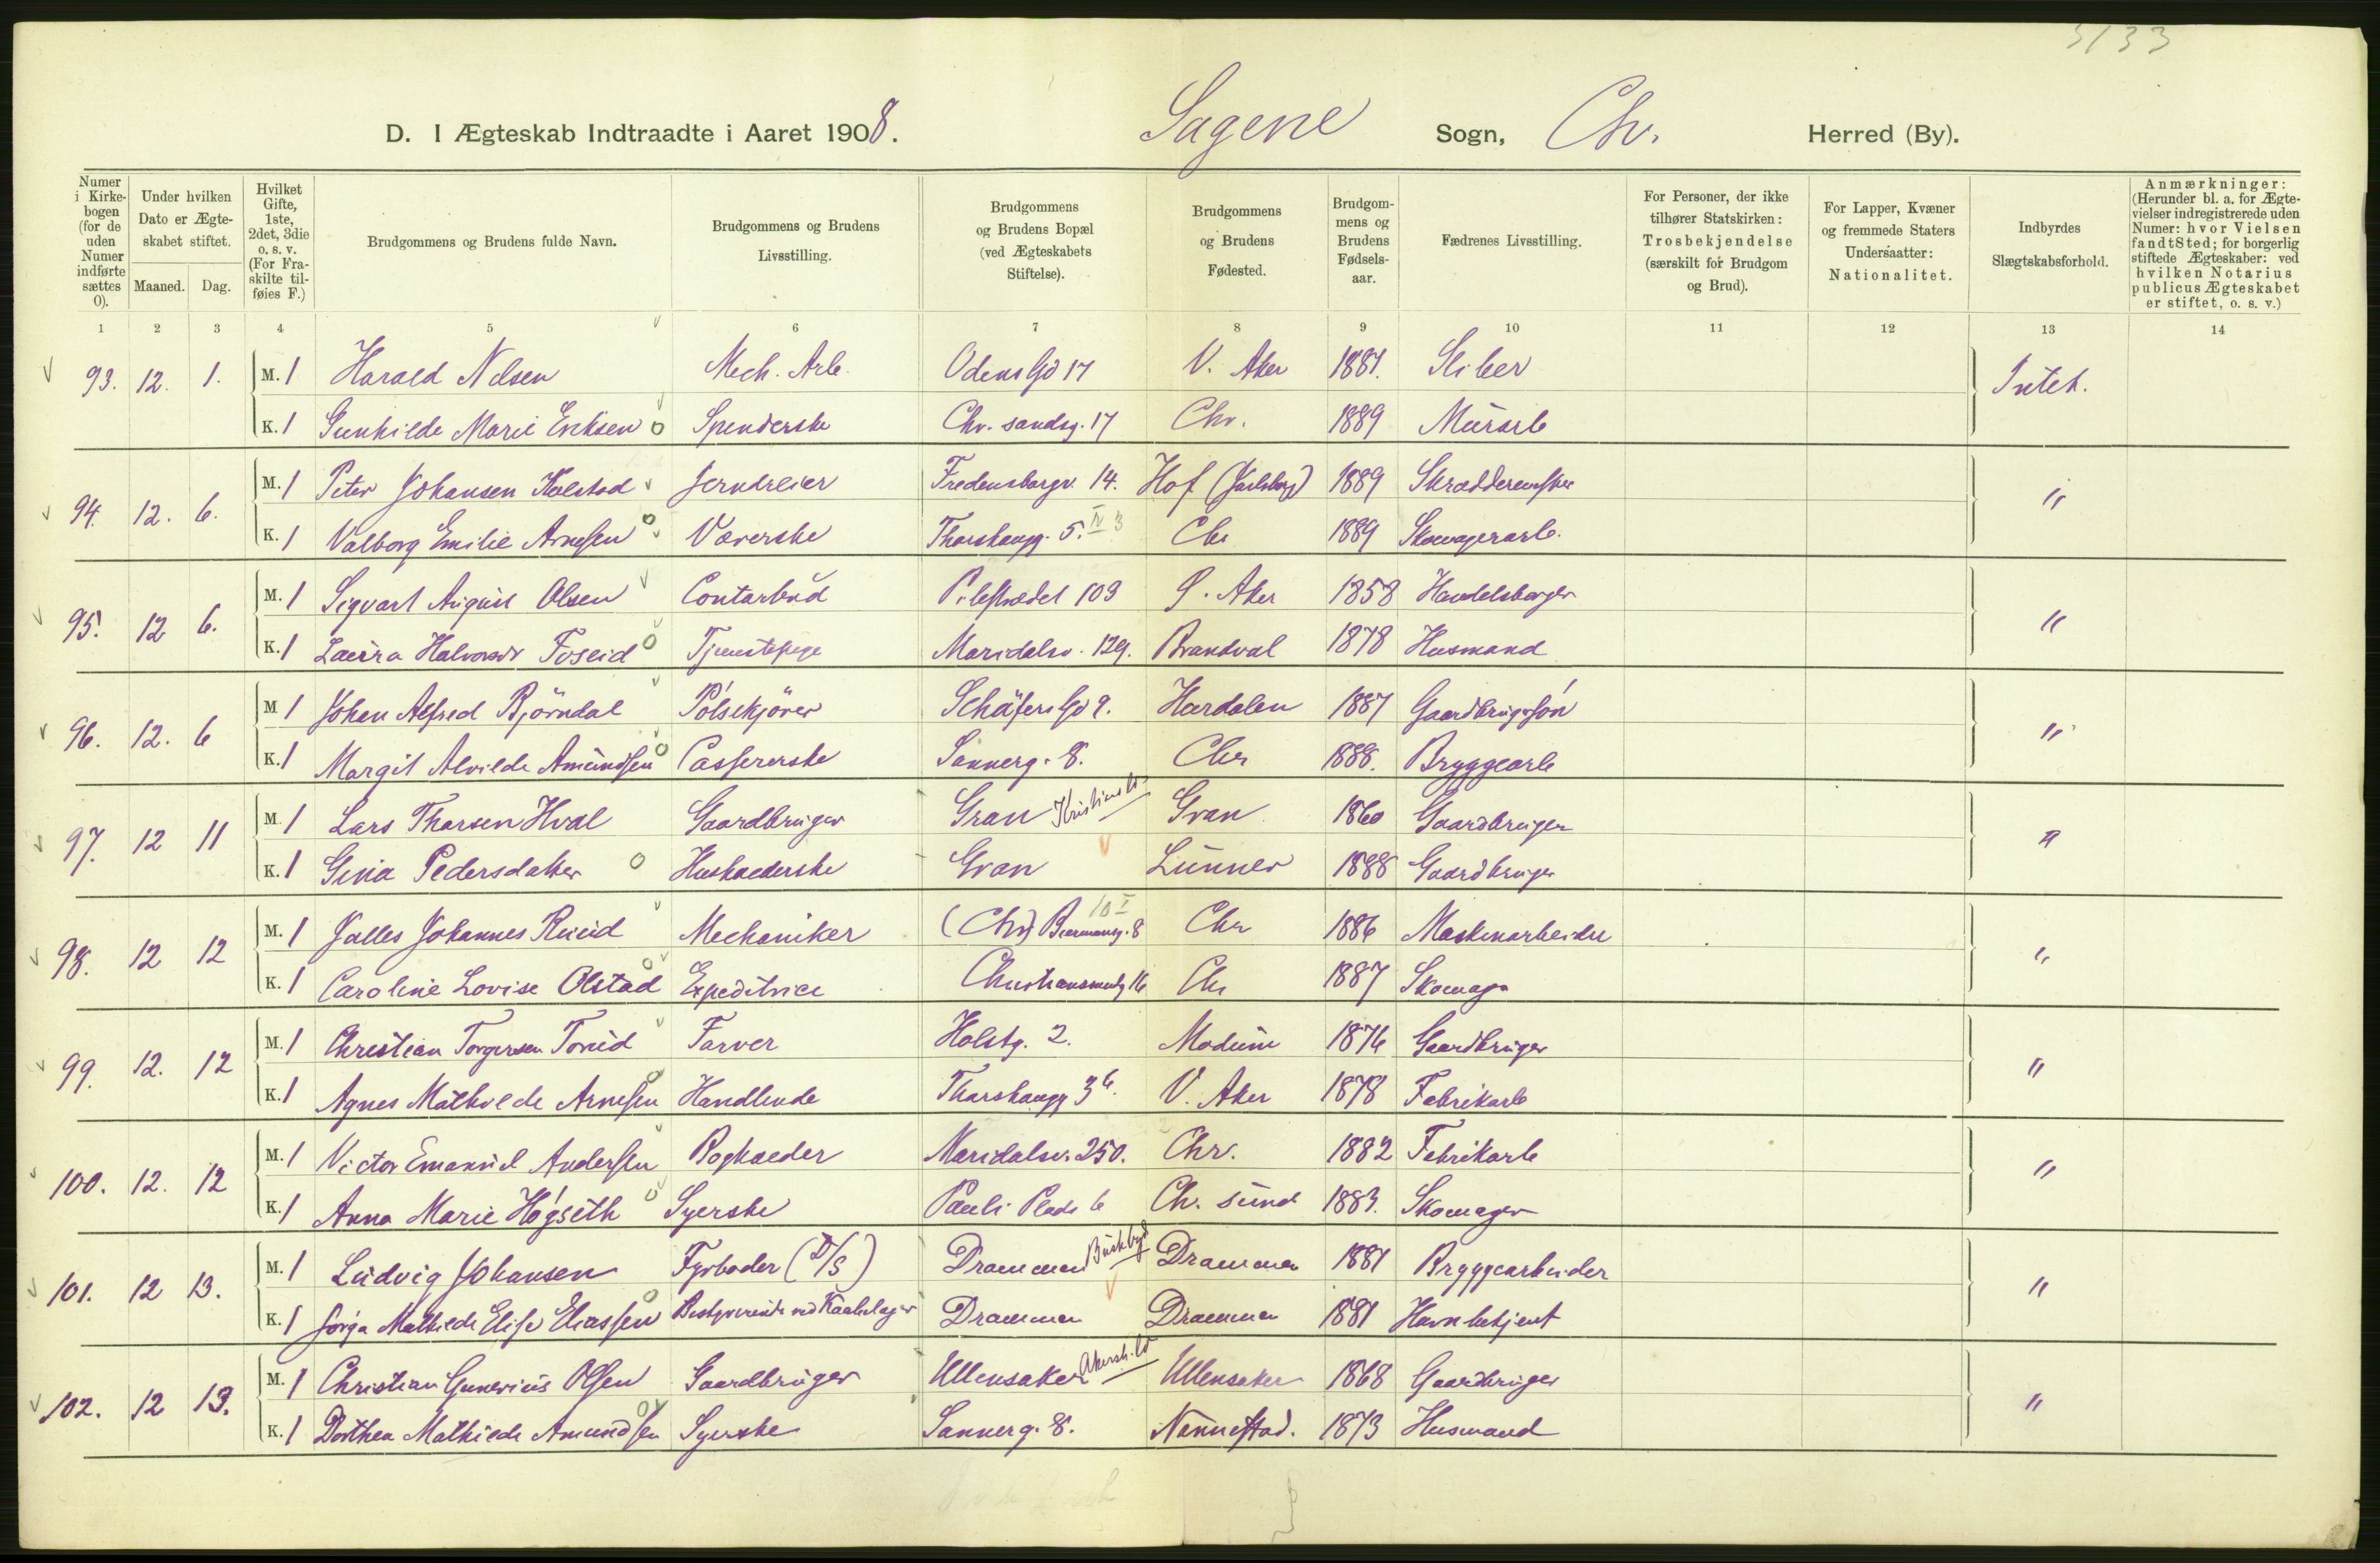 3133
D. I Ægteskab Indtraadte i Aaret 1908. Sagene Sogn, Chr. Herred (By).
Numer i Kirke-bogen (for de uden Numer indførte sættes 0).
Under hvilken Dato er Ægte-skabet stiftet.
Maaned. Dag.
Hvilket Gifte, 1ste, 2det, 3die o. s. v. (For Fra-skilte til-føies F.)
Brudgommens og Brudens fulde Navn.
Brudgommens og Brudens Livsstilling.
Brudgommens og Brudens Bopæl (ved Ægteskabets Stiftelse).
Brudgommens og Brudens Fødested.
Brudgom-mens og Brudens Fødsels-aar.
Fædrenes Livsstilling.
For Personer, der ikke tilhører Statskirken: Trosbekjendelse (særskilt for Brudgom og Brud).
For Lapper, Kvæner og fremmede Staters Undersaatter: Nationalitet.
Indbyrdes Slægtskabsforhold.
Anmærkninger: (Herunder bl. a. for Ægte-vielser indregistrerede uden Numer: hvor Vielsen fandt Sted; for borgerlig stiftede Ægteskaber: ved hvilken Notarius publicus Ægteskabet er stiftet, o. s. v.)
1 2 3 4 5 6 7 8 9 10 11 12 13 14
93. 12. 1. M. 1 Harald Nilsen Mech. Arb. Odens Gd 17 V. Aker 1881. Sliber Intet.
K. 1 Gunhilde Marie Eriksen Spinderske Chr. sandsg. 17 Chr. 1889 Murarb
94. 12. 6. M. 1 Peter Johansen Kolstad Jerndreier Fredensborgv. 14. Hof (Jarlsberg) 1889 Skræddermester "
K. 1 Valborg Emilie Arnesen Væverske Thorshaugg. 5. IV 3 Chr 1889 Skomagerarb.
95. 12 6. M. 1 Sigvart August Olsen Contorbud Pilestrædet 103 Ø. Aker 1858 Handelsborger "
K. 1 Laura Halvorsdr Foseid Tjenestepige Maridalsv. 129. Brandval 1878 Husmand
96. 12. 6 M 1 Johan Alfred Bjørndal Pølsekjører Schäfers Gd 9. Hurdalen 1887 Gaardbrugerføn "
K. 1 Margit Alvilde Amundsen Casfererske Sannerg. 8. Chr 1888. Bryggearb
97. 12 11 M. 1 Lars Thorsen Hval Gaardbruger Gran Kristians A. Gran 1860 Gaardbruger "
K. 1 Gina Pedersdatter Husholderske Gran Lunner 1888 Gaardbruger
98. 12 12 M. 1 Jalles Johannes Ruud Mechaniker (Chr) Biermannsg. 8 10 I Chr 1886 Maskinarbeider "
K. 1 Caroline Lovise Olstad Expeditrice Christiansmindeg 16 Chr 1887 Skomager
99. 12. 12 M. 1 Christian Torgersen Torud Farver Holstg. 2. Modum 1876 Gaardbruger "
K. 1 Agnes Mathilde Arnesen Handlende Thorshaugg 3 b. V. Aker 1878 Fabrikarb
100. 12. 12 M. 1 Victor Emanuel Andersen Bogholder Maridalsv. 250. Chr. 1882 Fabrikarb "
K. 1 Anna Marie Høgseth Syerske Pauls Plads 6 Ch. sund 1883. Skomager
101. 12 13. M. 1 Ludvig Johansen Fyrbøder (D/S) Drammen Buskerud Drammen 1881 Bryggearbeider "
K. 1 Jørga Mathilde Elise Eliassen Bestyrerinde ved Kaabelager Drammen Drammen 1881 Havnbetjent
102. 12 13. M. 1 Christian Gunerius Olsen Gaardbruger Ullensaker Akersh. A. Ullensaker 1868 Gaardbruger "
K. 1 Dorthea Mathilde Amundsen Syerske Sannerg. 8. Nannestad. 1873 Husmand